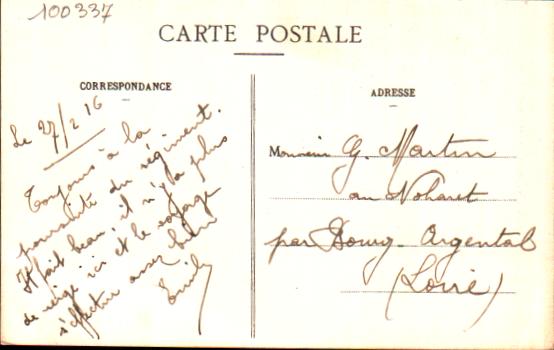 100337
CARTE POSTALE
CORRESPONDANCE
Le 27/2 16
Toujours à la
poursuite du régiment.
Il fait beau, il n'y a plus
de neige ici et le voyage
s'effectue assez bien
Emile
ADRESSE
Monsieur G. Martin
au Noharet
par Bourg-Argental
(Loire)